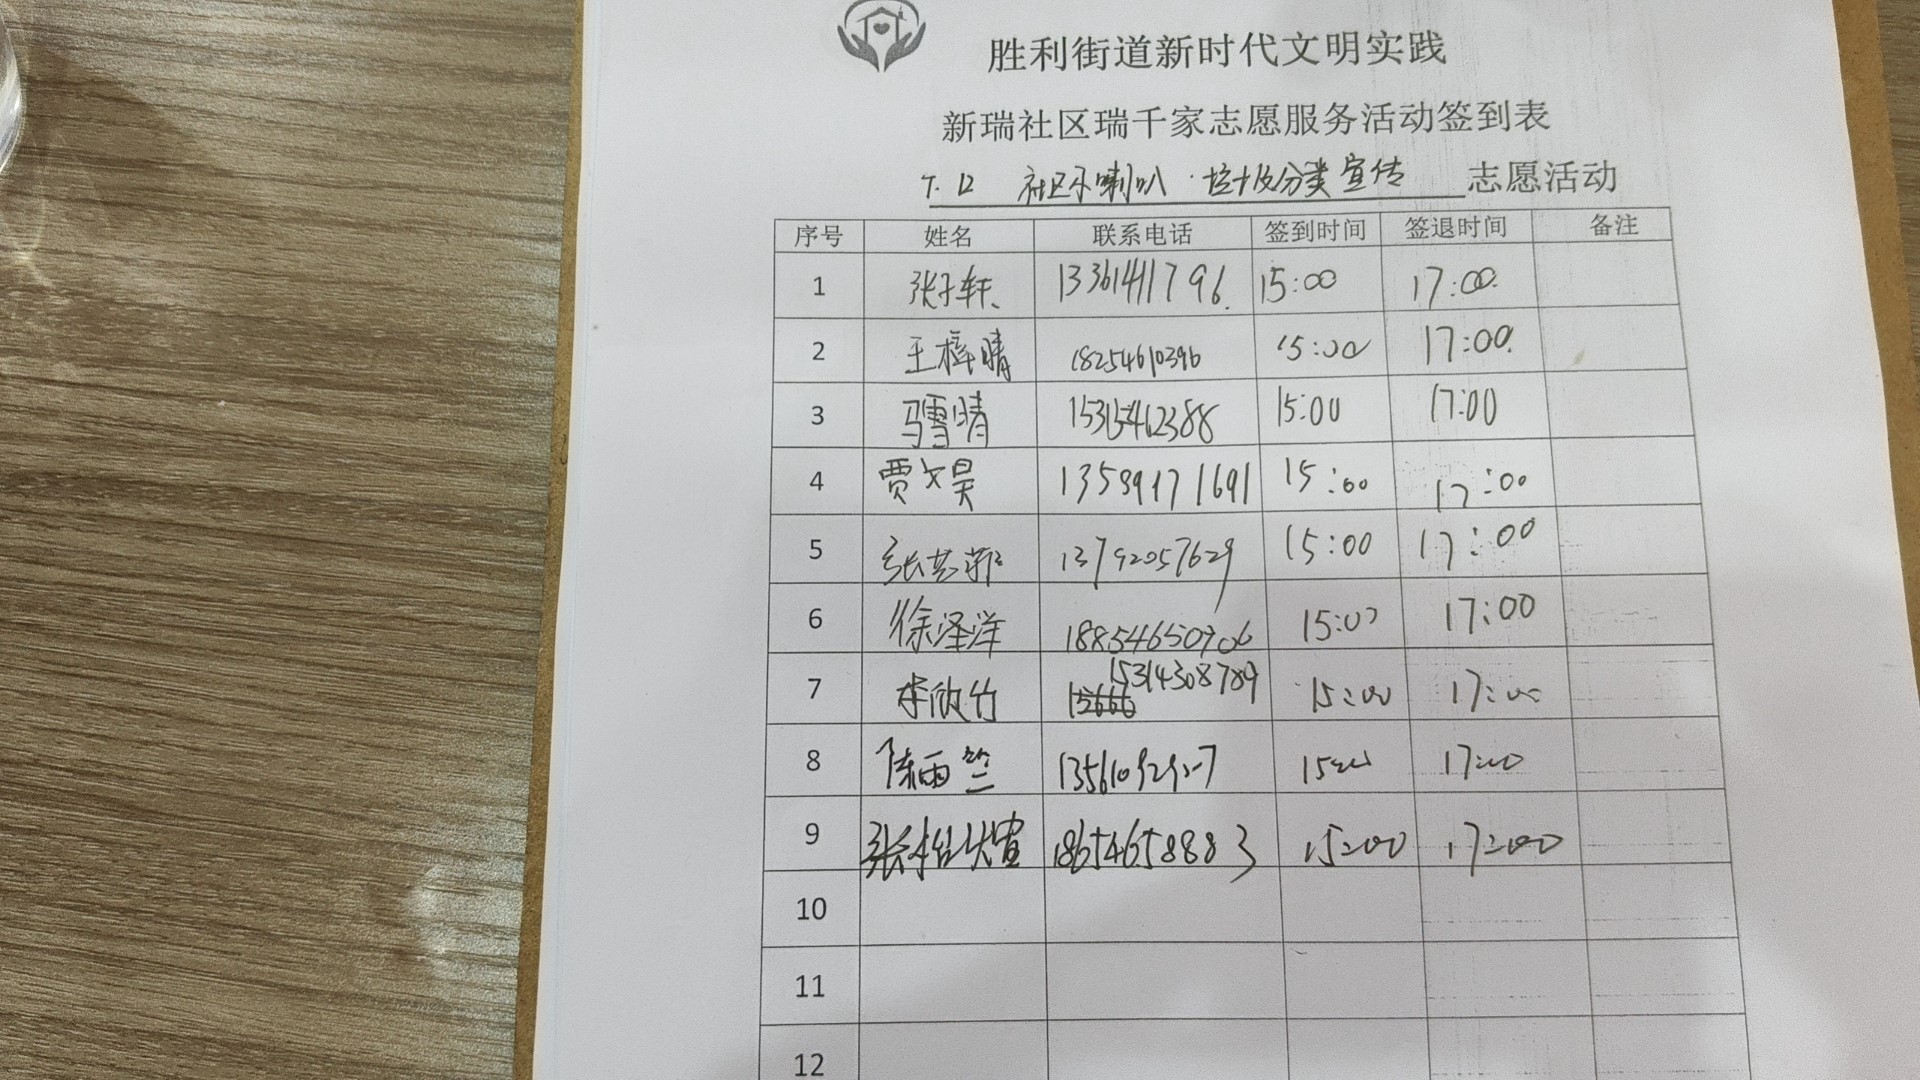 胜利街道新时代文明实践
新瑞社区瑞千家志愿服务活动签到表
7.12 社区小喇叭·垃圾分类宣传 志愿活动
序号 姓名 联系电话 签到时间 签退时间 备注
1 张子轩 13361411796 15:00 17:00
2 王梓晴 18254610396 15:00 17:00
3 马雪晴 15315462388 15:00 17:00
4 贾文昊 13589171691 15:00 17:00
5 13792057629 15:00 17:00
6 徐泽洋 18854650706 15:00 17:00
7 李欣竹 15314308789 15:00 17:00
8 陈雨竺 15:00 17:00
9 18654658883 15:00 17:00
10
11
12